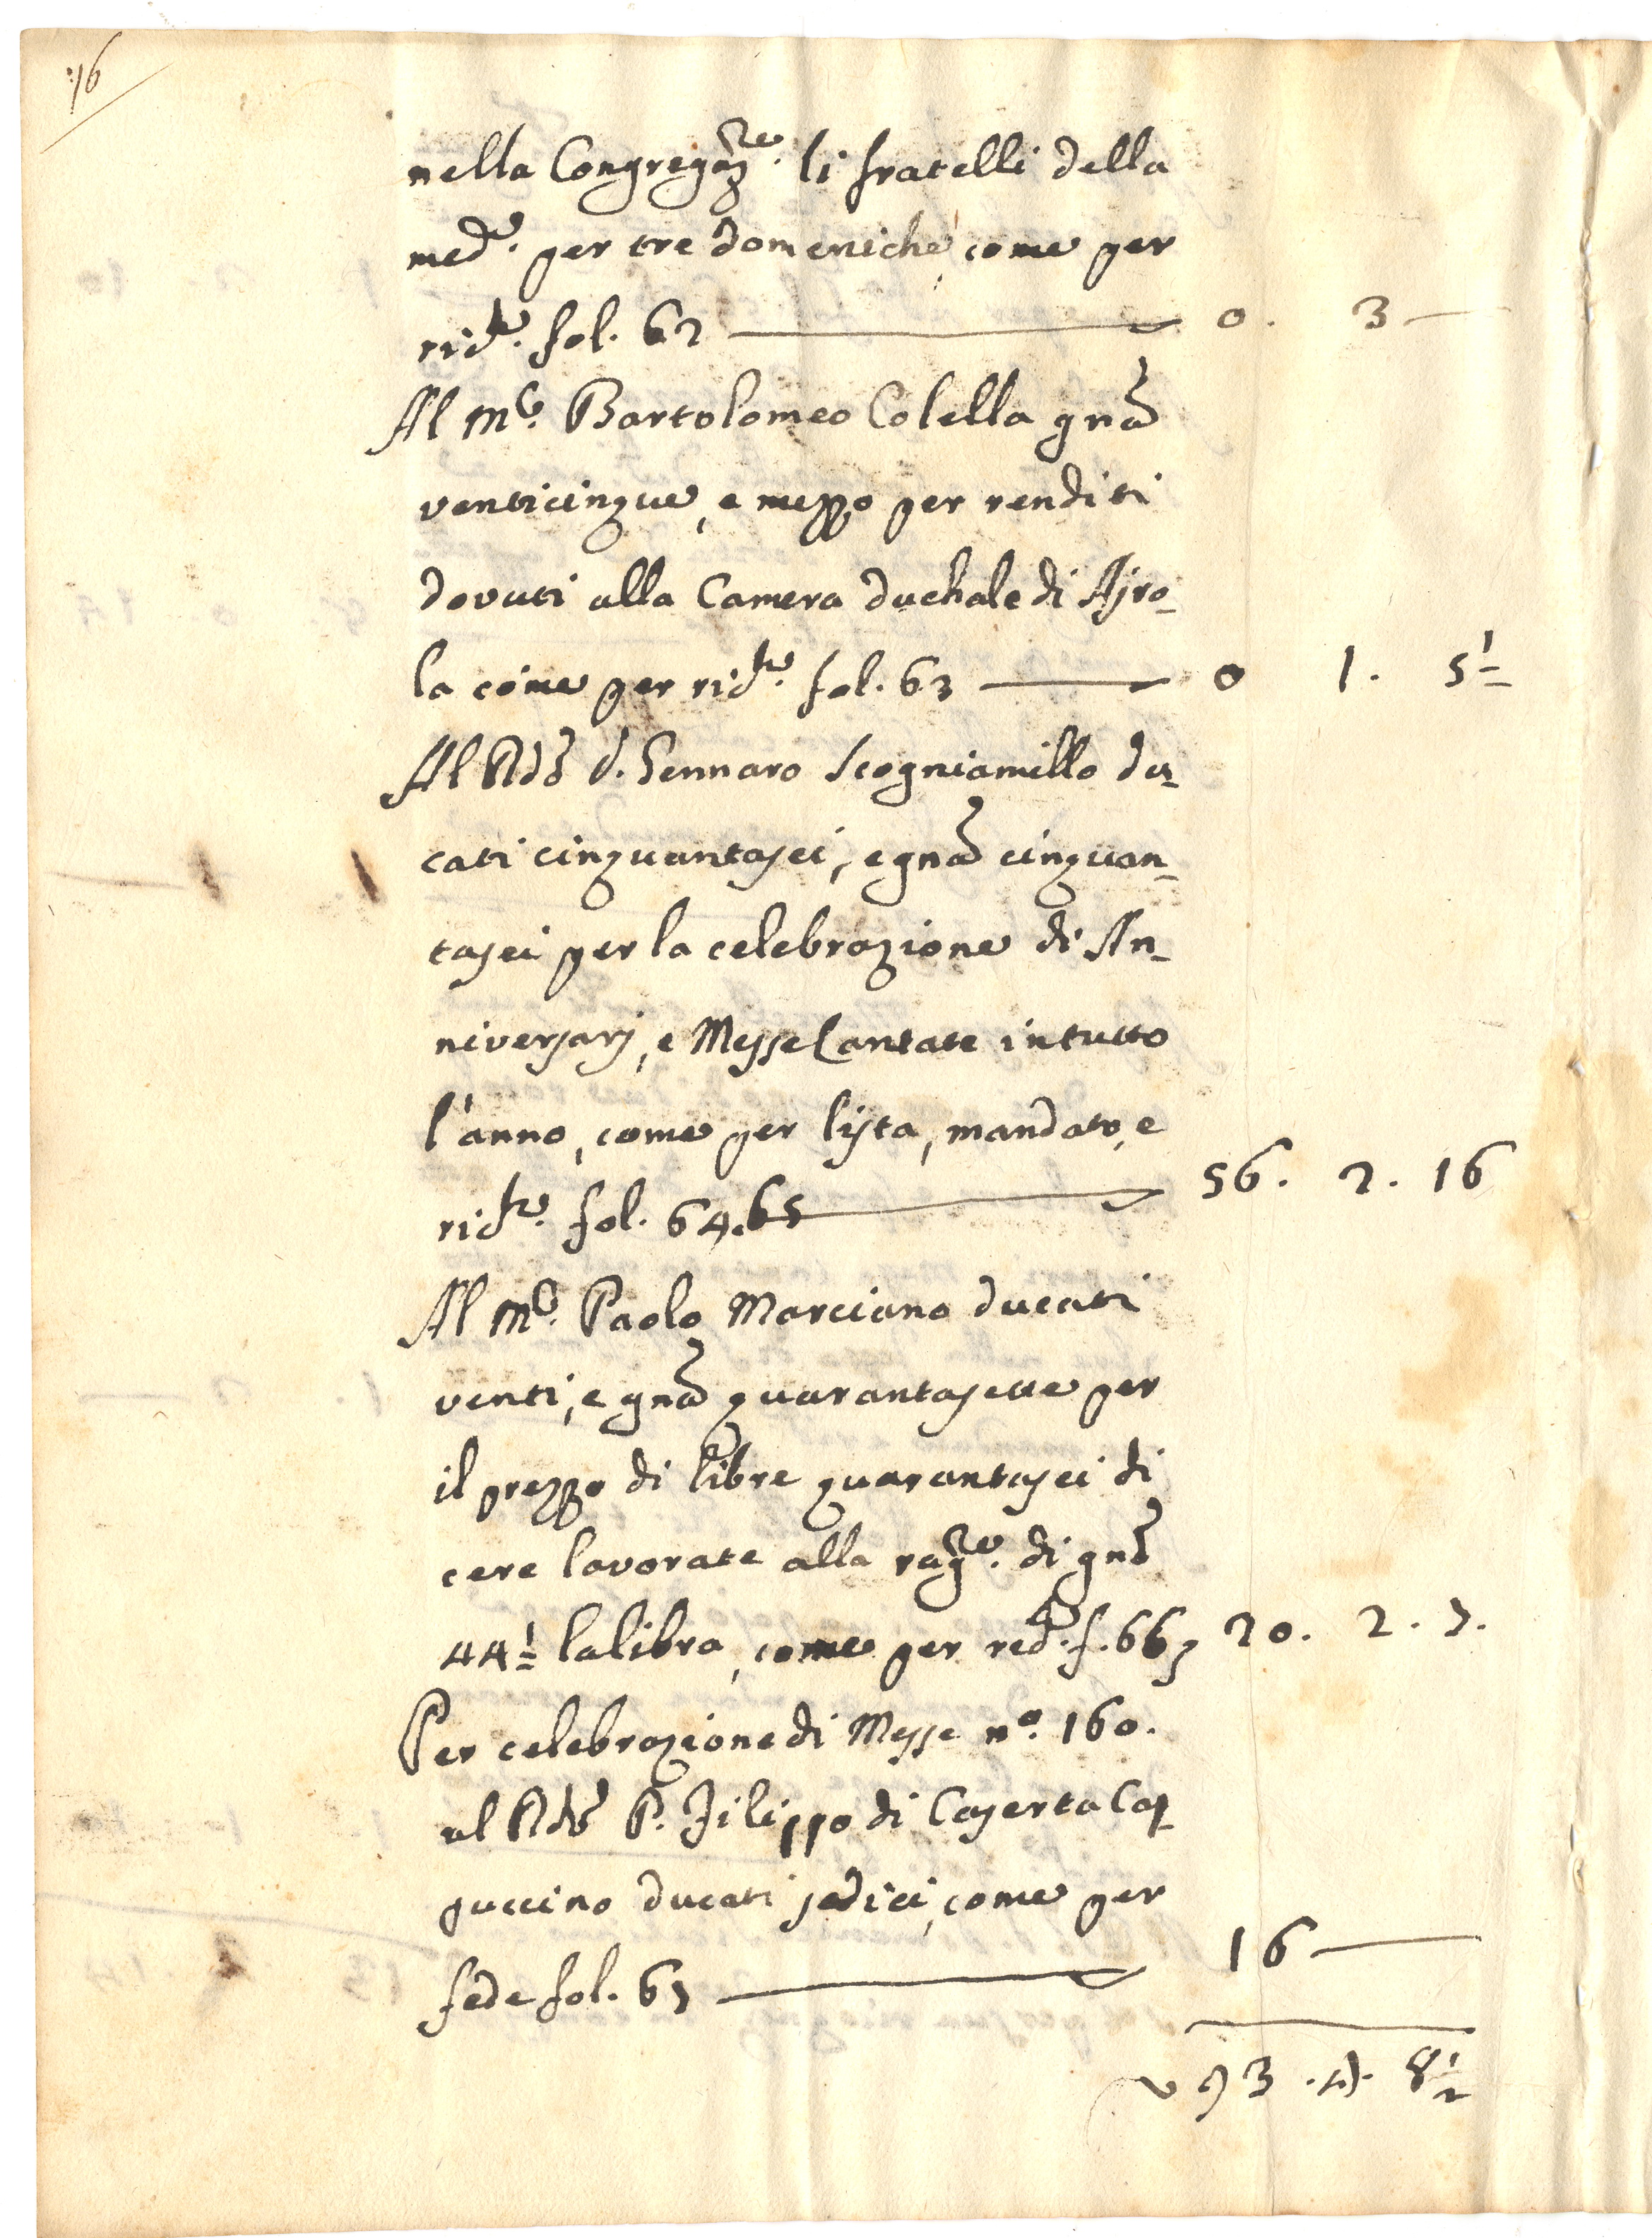 16
nella Congregaz.ne li fratelli della
med.a per tre domeniche, come per
ric.ta fol. 62 0. 3
Al M.co Bartolomeo Colella gna
venticinque, e mezzo per renditi
dovuti alla Camera duchale di Ajro-
la come per ric.ta fol. 63 0 1. 5 1/2
Al Rdo d. Gennaro Scogniamillo du-
cati cinquantasei, e gna cinquan-
tasei per la celebrazione di An-
niversarj, e Messe Cantate in tutto
l'anno, come per lista, mandato, e
ric.ta fol. 64.65 56. 2. 16
Al M.co Paolo Marciano ducati
venti, e gna quarantasette per
il prezzo di libre quarantasei di
cere lavorate alla rag.ne di gna
44 1/2 la libra, come per red. f. 66 20. 2. 7.
Per celebrazione di Messe n.o 160.
al Rdo P. Filippo di Caserta Cap
puccino ducati sedici, come per
fede fol. 67 16
93 .4. 8 1/2